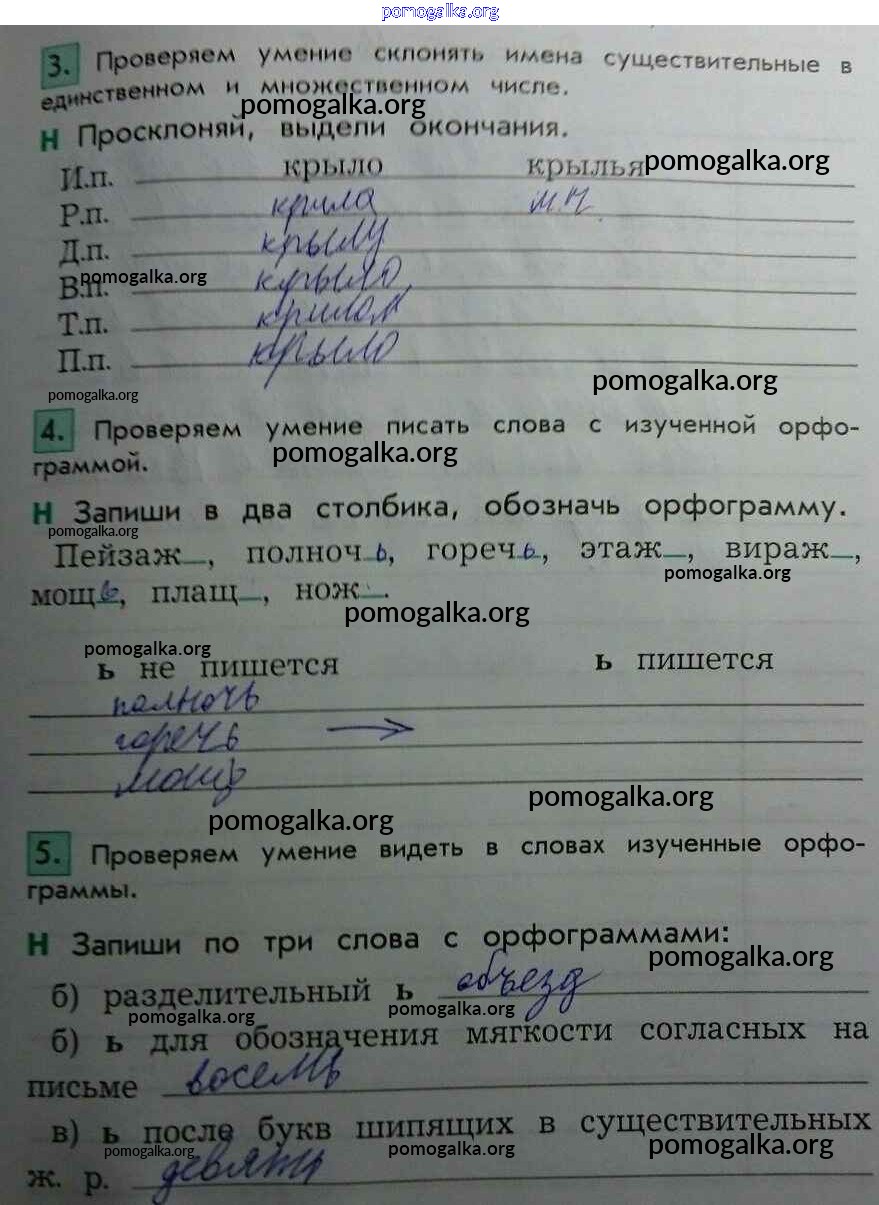 pomogalka.org
3. Проверяем умение склонять имена существительные в
единственном и множественном числе.
pomogalka.org
Н Просклоняй, выдели окончания.
И.п. крыло крылья pomogalka.org
Р.п. крила м.ч.
Д.п. крылу
pomogalka.org
В.п. крыло
Т.п. крилом
П.п. крыло
pomogalka.org
pomogalka.org
4. Проверяем умение писать слова с изученной орфо-
pomogalka.org
граммой.
Н Запиши в два столбика, обозначь орфограмму.
pomogalka.org
Пейзаж_, полночь, горечь, этаж_, вираж_,
pomogalka.org
мощь, плащ_, нож_.
pomogalka.org
pomogalka.org
ь не пишется ь пишется
полночь
горечь →
мощь
pomogalka.org
pomogalka.org
5. Проверяем умение видеть в словах изученные орфо-
граммы.
Н Запиши по три слова с орфограммами:
pomogalka.org
б) разделительный ь объезд
pomogalka.org pomogalka.org
б) ь для обозначения мягкости согласных на
письме восемь
в) ь после букв шипящих в существительных
pomogalka.org pomogalka.org pomogalka.org
ж. р. девять